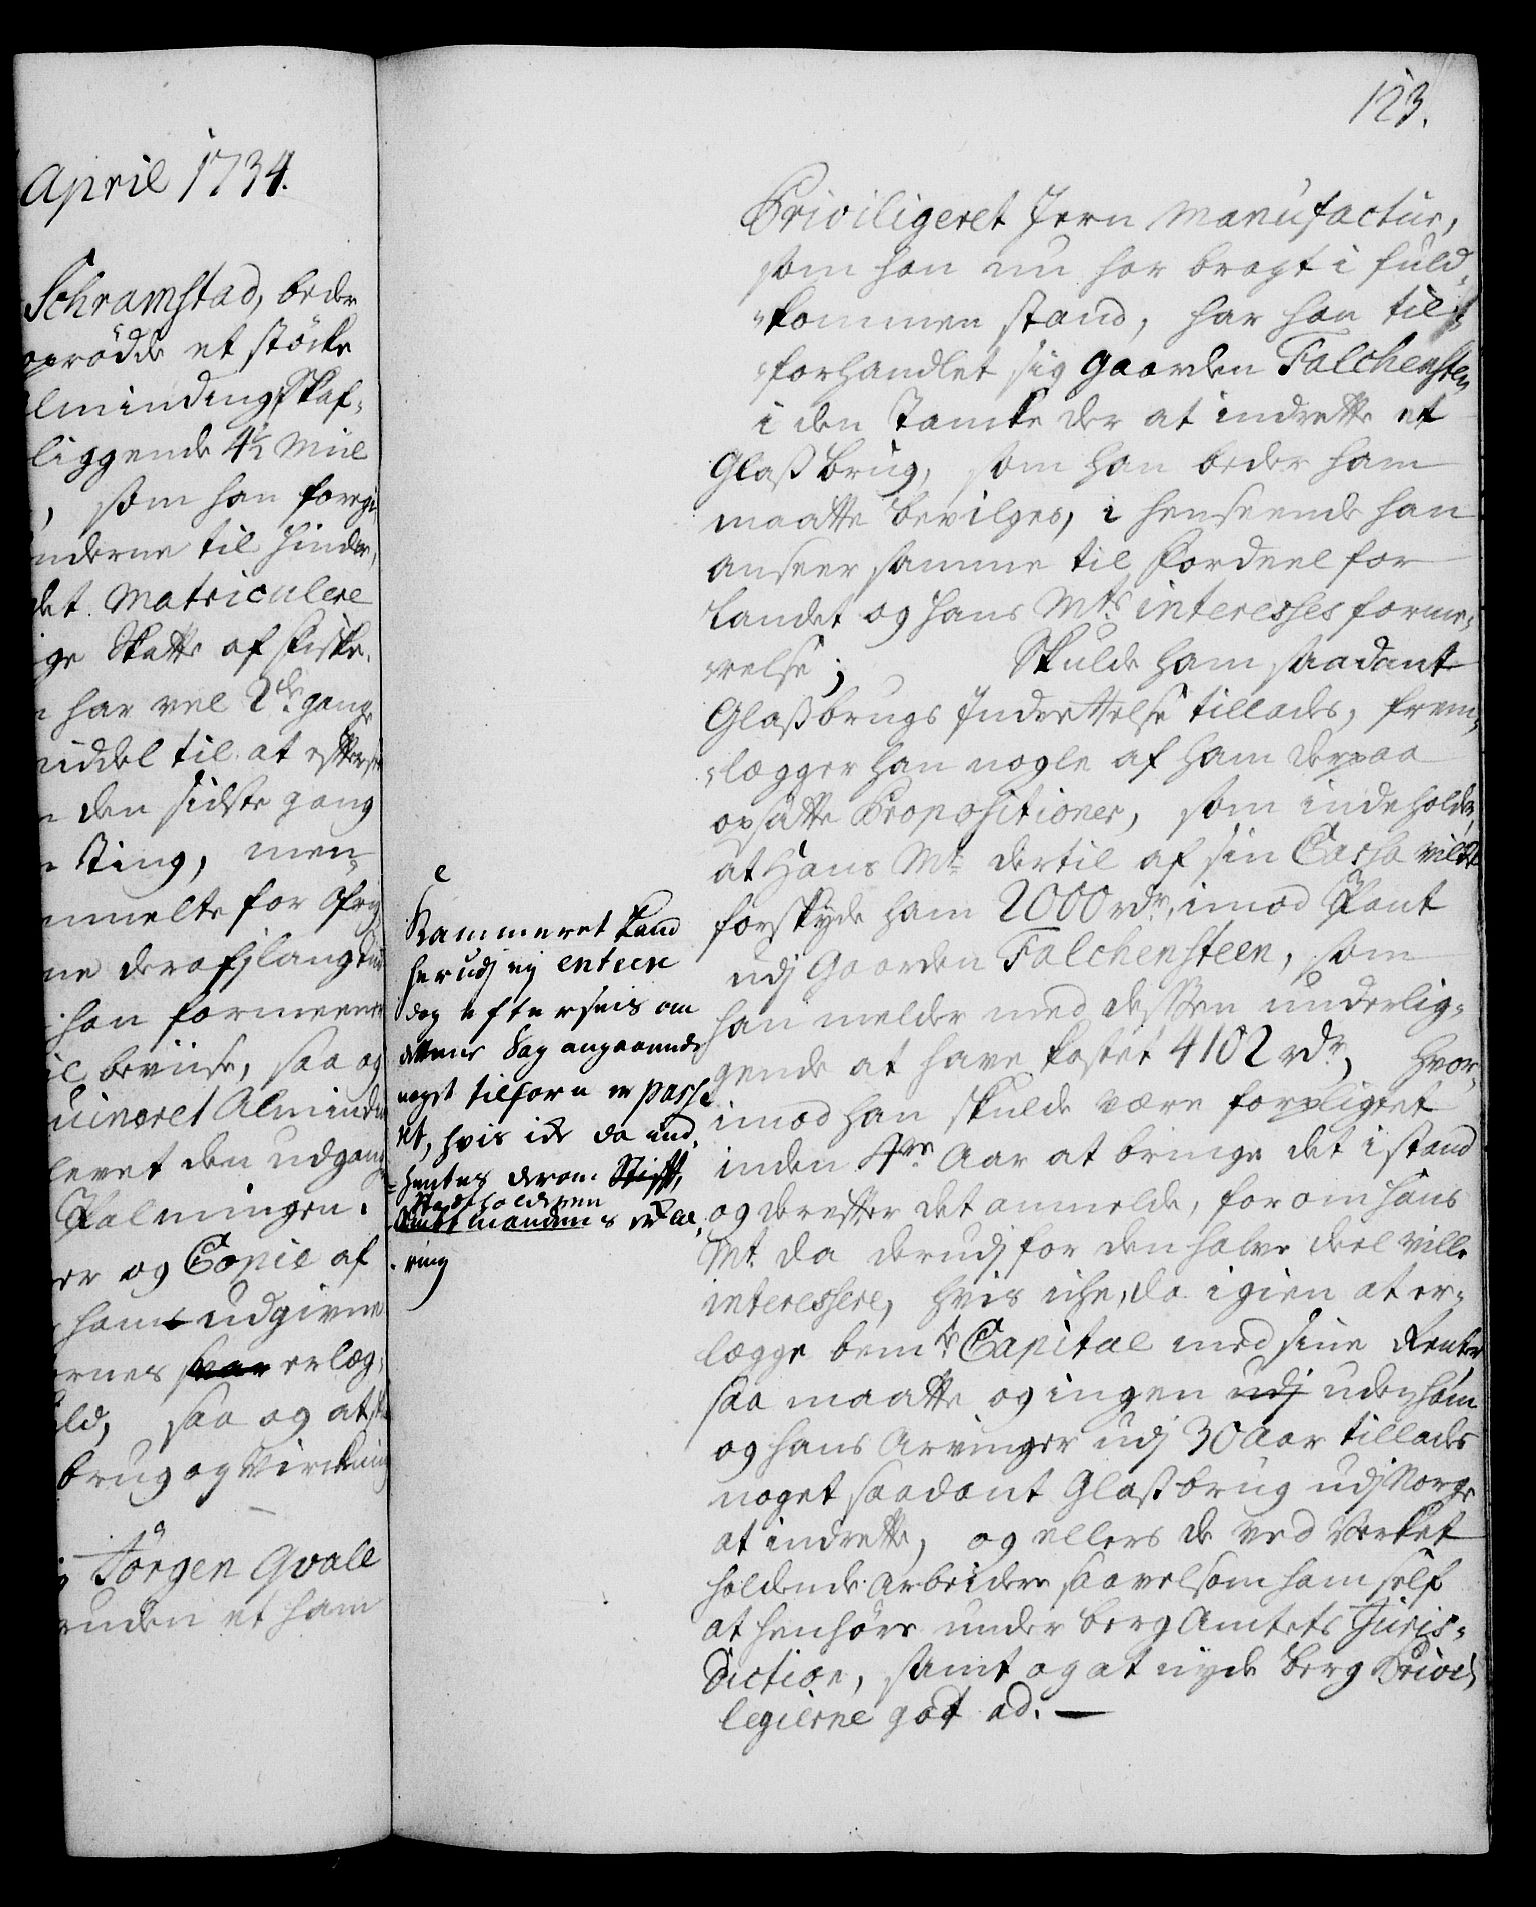 April 1734.
Schramstad, beder
oprödde et störke
lmindingsskaf=
liggende 4½ Miil
, som han foregi
nderne til hinder,
det Matriculere
ige Skatte af friske.
har vel 2de gange
middel til at effters
den sidste gang
Ting, men
mmelte for Ofrig
ne deraf, langt
han formeener
beviise, saa og
uineret Alminding
levet den udgang
Falmingen.
er og Copie af
ham udgivne
ernes svar erleg=
ld, saa og at
brug og Virckning
Jörgen Qvale
ruden et ham
123.
Priviligeret Jern Manufactur,
som han nu har bragt i fuld=
=kommen stand, har han til=
=forhandlet sig Gaarden Falchensten
i den Tancke der at indrette et
Glasbrug, som han beder ham
maatte bevilges, i henseende han
anseer samme til Fordeel for
Landet og hans Mts interesses forme=
=relse; Skulde ham saadant
Glasbrugs Indrettelse tillades, frem=
=legger han nogle af ham derpaa
opsatte Propositioner, som indeholder,
at Hans Mt dertil af sin Cassa vilde
forskyde ham 2000 rdr, imod Pant
udj Gaarden Falchensteen, som
han melder med dessen underlig=
gende at have kostet 4102 rdr, hvor=
imod han skulde være forpligtet
inden 4re Aar at bringe det i stand
og derefter det anmelde, for om hans
Mt da derudj for den halve deel ville
interessere, hvis icke, da igien at er=
legge bemte Capital med sine Renter
saa maatte og ingen udj uden ham
og hans Arvinger udj 30 Aar tillades
noget saadant Glasbrug udj Norge
at indrette, og ellers de ved Verket
holdende Arbeidere saavelsom ham self
at henhöre under Berg Amtets Juris=
diction, samt og at nyde Berg Privi
legierne got ad. —
e
Kammeret kand
herudj ej entere
dog efterseis om
dene Sag angaaende
noget tilforn er passe
ret, hvis icke da ind=
=hentes derom Stift,
Stadtholderen
Amtmandens erklæ
=ring